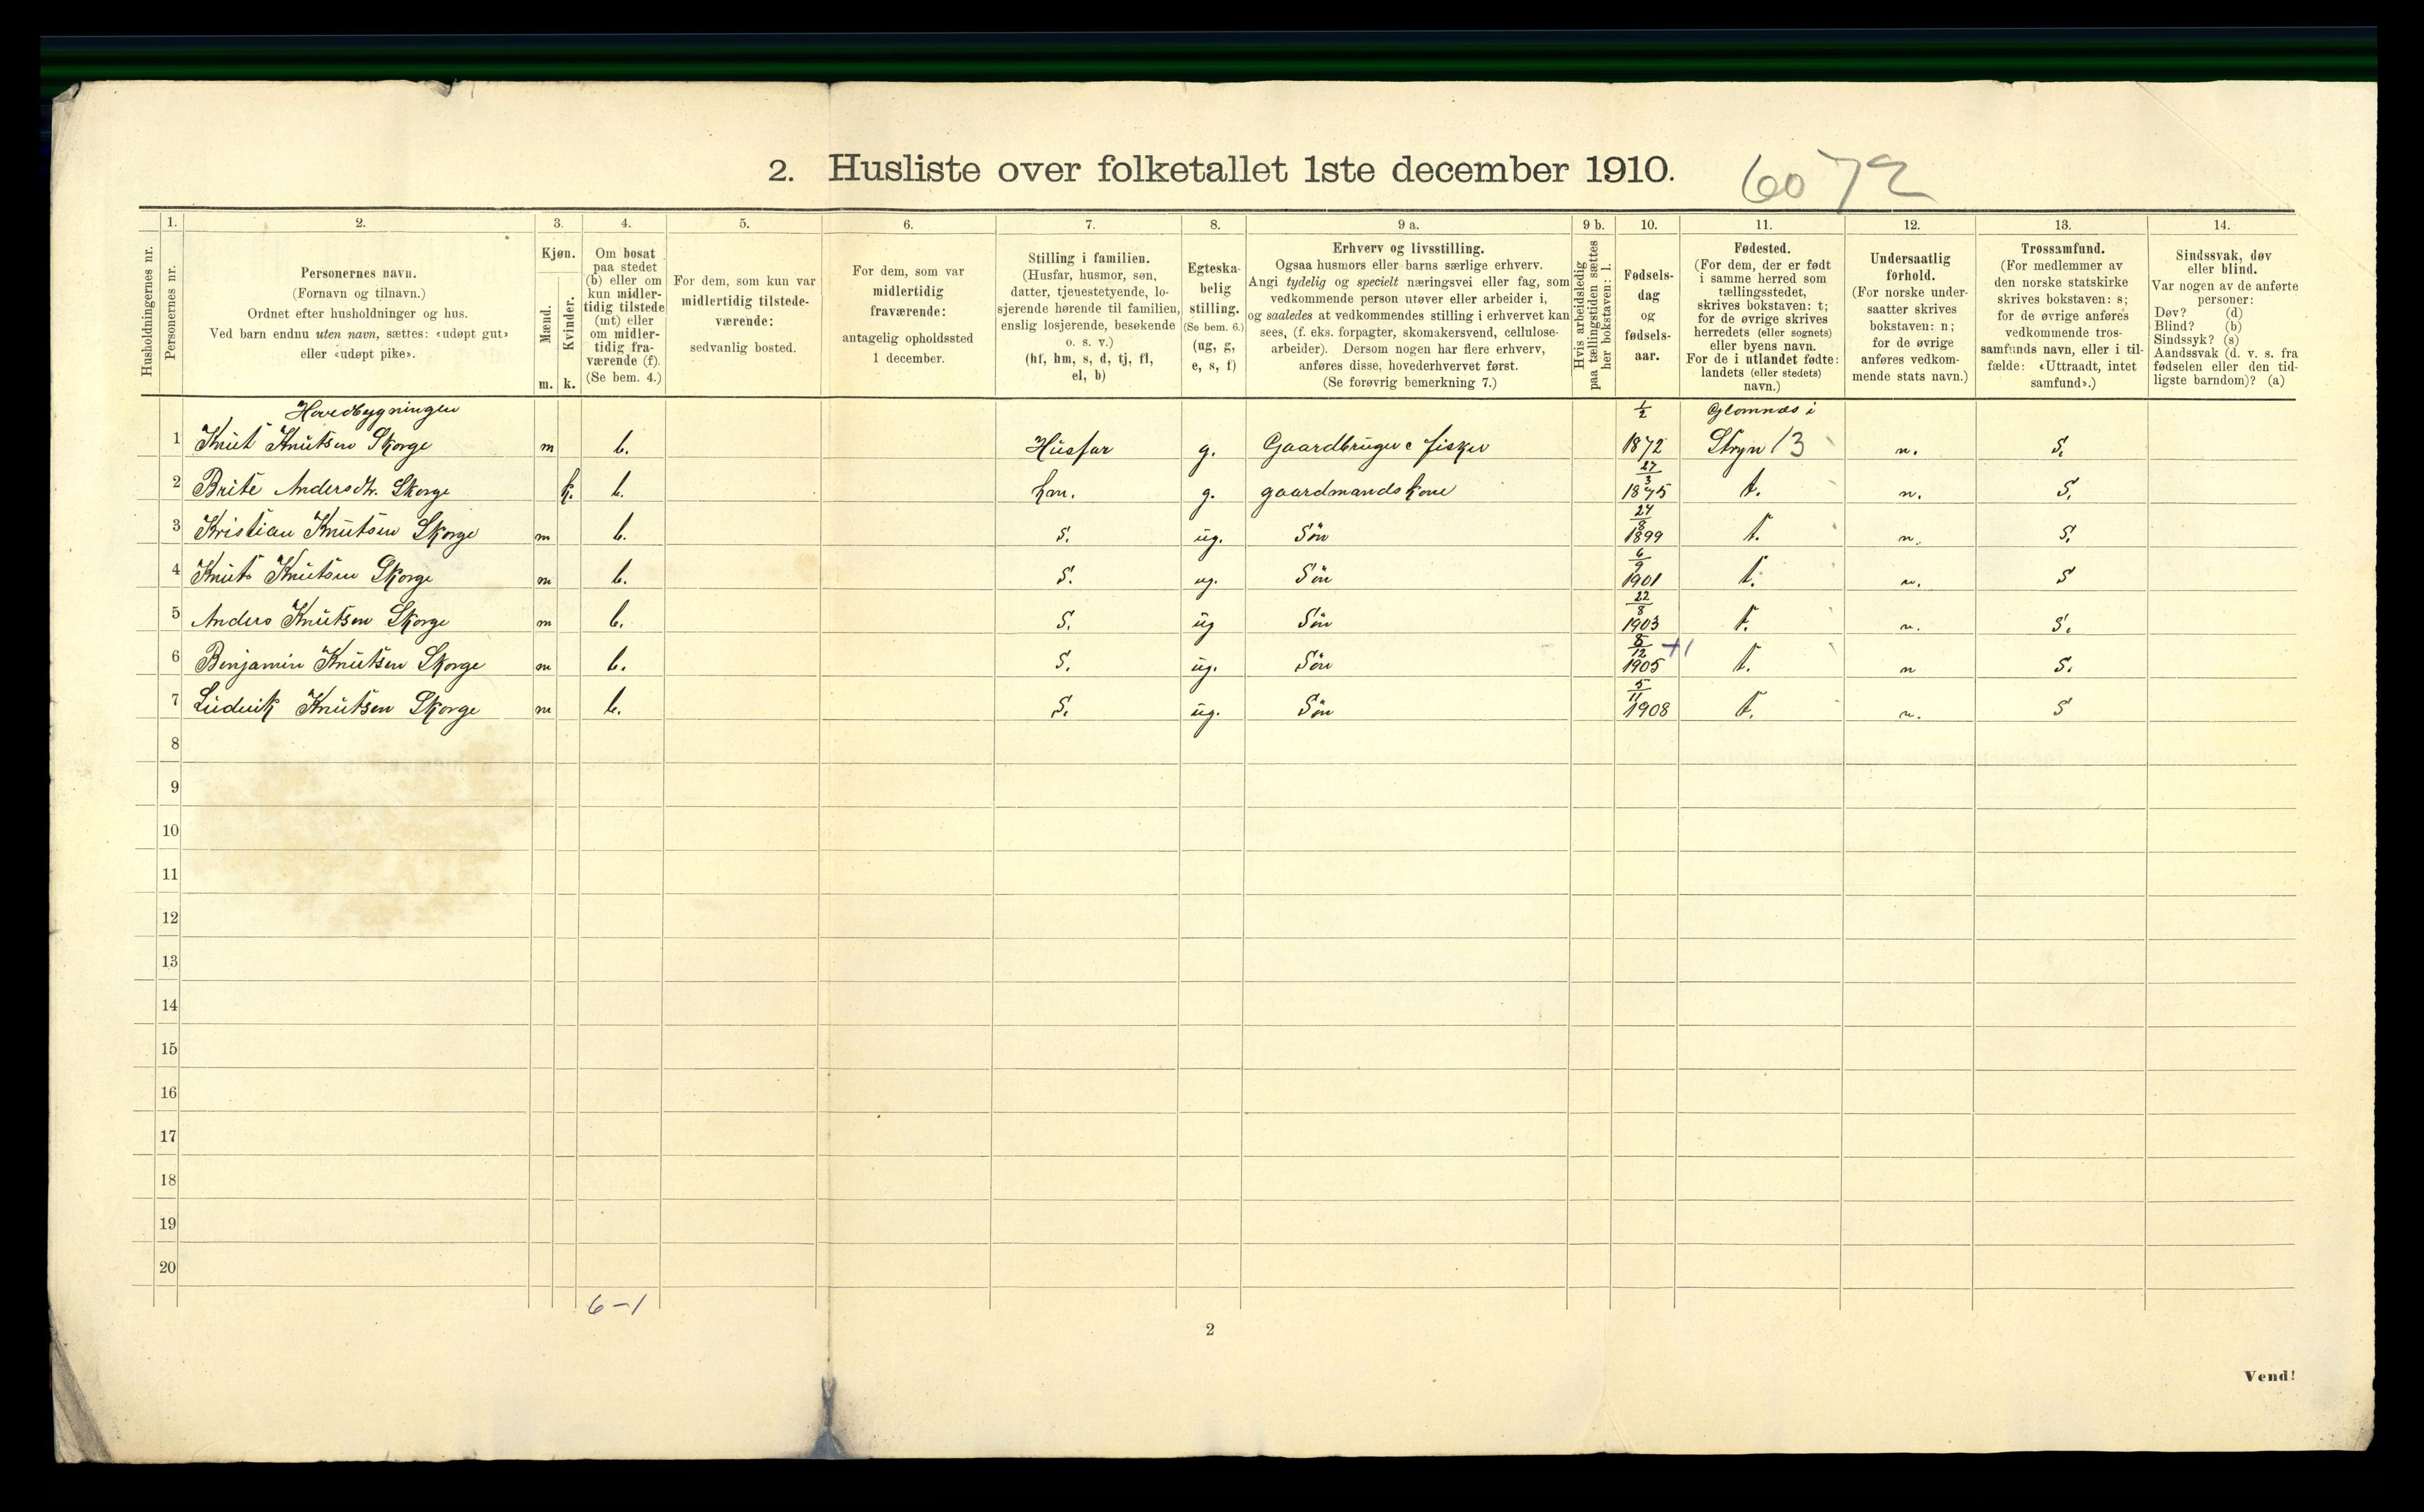 2. Husliste over folketallet 1ste december 1910. 6072
Husholdningernes nr.
1.
Personernes nr.
2.
Personernes navn.
(Fornavn og tilnavn.)
Ordnet efter husholdninger og hus.
Ved barn endnu uten navn, sættes: «udøpt gut»
eller «udøpt pike».
3.
Kjøn.
Mænd.
Kvinder.
m. k.
4.
Om bosat
paa stedet
(b) eller om
kun midler-
tidig tilstede
(mt) eller
om midler-
tidig fra-
værende (f).
(Se bem. 4.)
5.
For dem, som kun var
midlertidig tilstede-
værende:
sedvanlig bosted.
6.
For dem, som var
midlertidig
fraværende:
antagelig opholdssted
1 december.
7.
Stilling i familien.
(Husfar, husmor, søn,
datter, tjenestetyende, lo-
sjerende hørende til familien,
enslig losjerende, besøkende
o. s. v.)
(hf, hm, s, d, tj, fl,
el, b)
8.
Egteska-
belig
stilling.
(Se bem. 6.)
(ug, g,
e, s, f)
9 a.
Erhverv og livsstilling.
Ogsaa husmors eller barns særlige erhverv.
Angi tydelig og specielt næringsvei eller fag, som
vedkommende person utøver eller arbeider i,
og saaledes at vedkommendes stilling i erhvervet kan
sees, (f. eks. forpagter, skomakersvend, cellulose-
arbeider). Dersom nogen har flere erhverv,
anføres disse, hovederhvervet først.
(Se forøvrig bemerkning 7.)
9 b.
Hvis arbeidsledig
paa tællingstiden sættes
her bokstaven: l.
10.
Fødsels-
dag
og
fødsels-
aar.
11.
Fødested.
(For dem, der er født
i samme herred som
tællingsstedet,
skrives bokstaven: t;
for de øvrige skrives
herredets (eller sognets)
eller byens navn.
For de i utlandet fødte:
landets (eller stedets)
navn.)
12.
Undersaatlig
forhold.
(For norske under-
saatter skrives
bokstaven: n;
for de øvrige
anføres vedkom-
mende stats navn.)
13.
Trossamfund.
(For medlemmer av
den norske statskirke
skrives bokstaven: s;
for de øvrige anføres
vedkommende tros-
samfunds navn, eller i til-
fælde: «Uttraadt, intet
samfund».)
14.
Sindssvak, døv
eller blind.
Var nogen av de anførte
personer:
Døv? (d)
Blind? (b)
Sindssyk? (s)
Aandssvak (d. v. s. fra
fødselen eller den tid-
ligste barndom)? (a)
Hovedbygningen 1/2 Glomnæs i
1 Knut Knutsen Skorge m b. Husfar g. Gaardbruger e fisker 1872 Stryn 13 n. S.
2 Brite Andersdtr. Skorge k. b. hm. g. gaardmandskone 27/3 1875 t. n. S.
3 Kristian Knutsen Skorge m b. S. ug. Sön 24/8 1899 t. n. S.
4 Knut Knutsen Skorge m b. S. ug. Sön 6/9 1901 t. n. S
5 Anders Knutsen Skorge m b. S. ug Sön 22/8 1903 t. n. S.
6 Benjamin Knutsen Skorge m b. S. ug. Sön 8/12 1905 +1 t. n S.
7 Ludvik Knutsen Skorge m b. S. ug. Sön 5/11 1908 t. n. S
8
9
10
11
12
13
14
15
16
17
18
19
20
6-1
2
Vend!